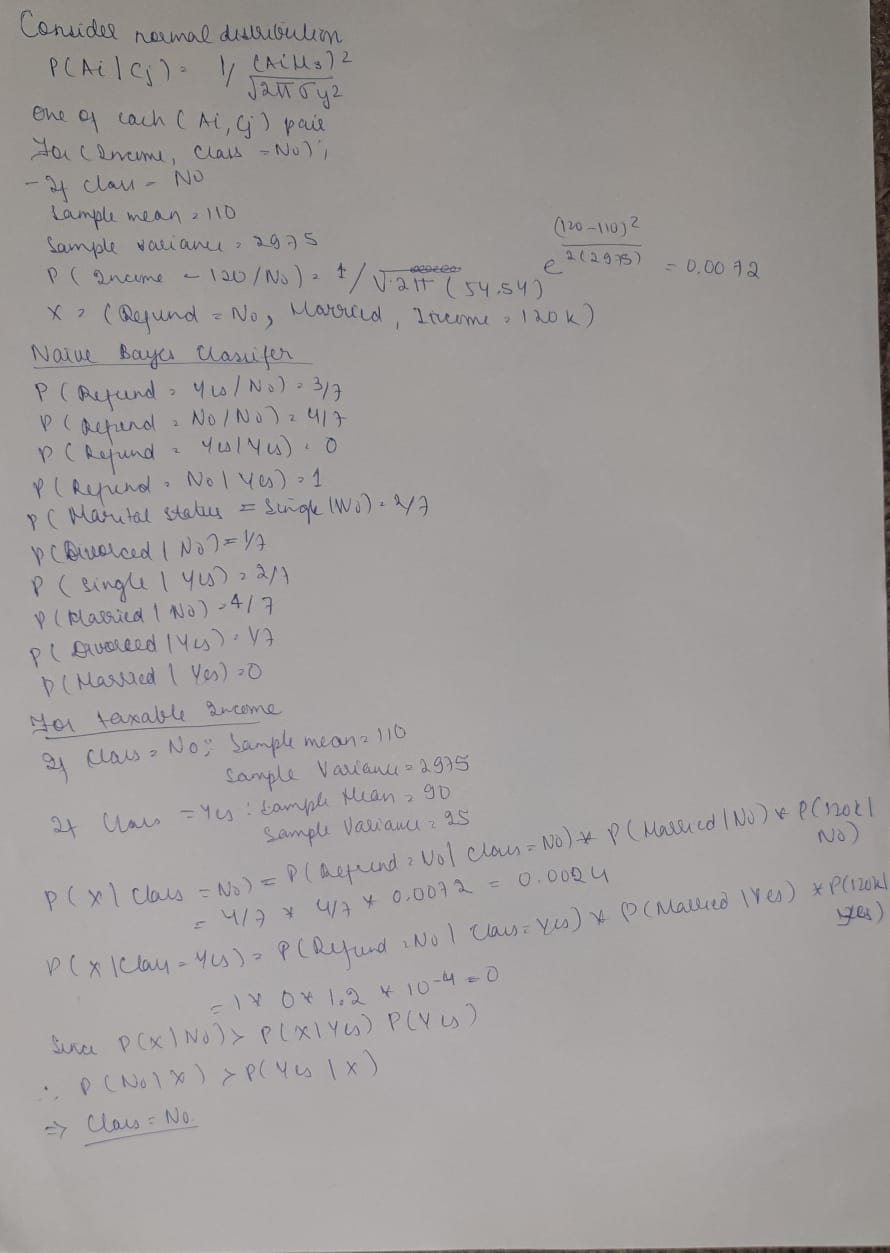 Consider normal distribution
P(Ai | Cj) = 1/ (Ai Ms)2 / √2π σy2
One of each (Ai, Cj) pair
For (Income, Class = No);
- If class = NO
Sample mean = 110
Sample variance = 2975
P(Income - 120/No) = 1/√2π (54.54) e (120-110)2 / 2(2975) = 0.0072
X = (Refund = No, Married, Income = 120K)
Naive Bayes Classifer
P(Refund = Yes/No) = 3/7
P(Refund = No/No) = 4/7
P(Refund = Yes|Yes) = 0
P(Refund = No|Yes) = 1
P(Marital status = Single|No) = 2/7
P(Divorced | No) = 1/7
P(Single | Yes) = 2/7
P(Married | No) = 4/7
P(Divorced | Yes) = 1/7
P(Married | Yes) = 0
For taxable Income
If class = No: Sample mean = 110
Sample Variance = 2975
If Class = Yes: Sample Mean = 90
Sample Variance = 25
P(X | Class = No) = P(Refund = No | Class = No) * P(Married | No) * P(120K | No)
= 4/7 * 4/7 * 0.0072 = 0.0024
P(X | Class = Yes) = P(Refund = No | Class = Yes) * P(Married | Yes) * P(120K | Yes)
= 1 * 0 * 1.2 * 10-4 = 0
Since P(X | No) > P(X | Yes) P(Yes)
∴ P(No | X) > P(Yes | X)
⇒ Class = No.